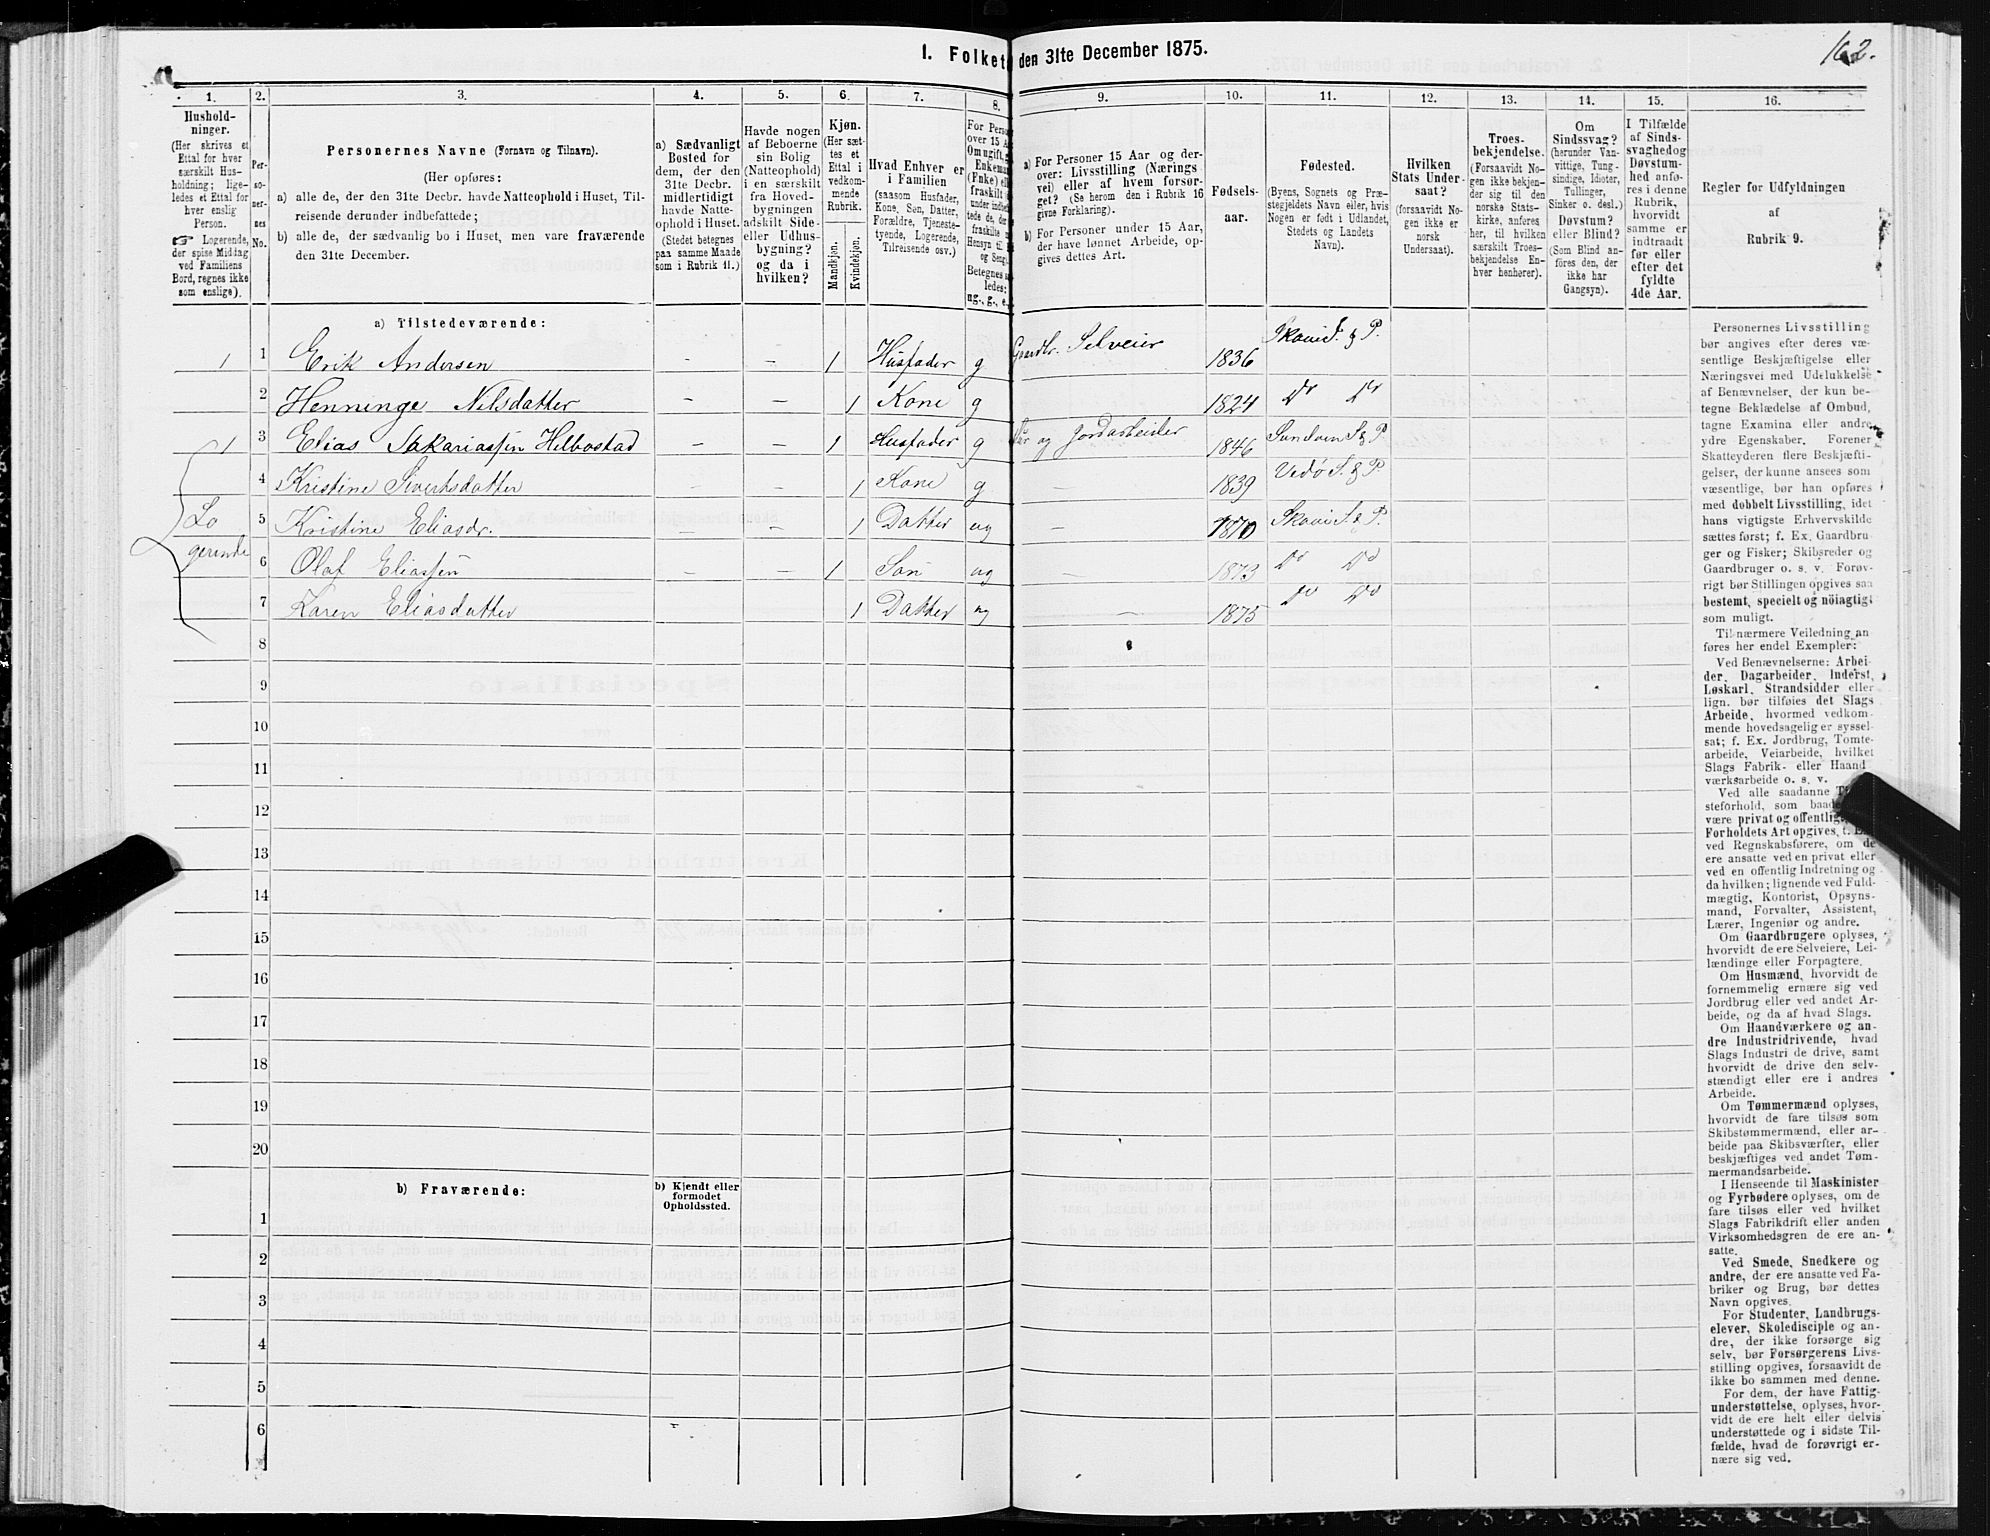 1. Folket den 31te December 1875.
162.
1.
2.
3.
4.
5.
6.
7.
8.
9.
10.
11.
12.
13.
14.
15.
16.
Hushold-
ninger.
(Her skrives et
Ettal for hver
særskilt Hus-
holdning; lige-
ledes et Ettal for
hver enslig
Person.
☞ Logerende,
der spise Middag
ved Familiens
Bord, regnes ikke
som enslige).
Per-
so-
ner-
nes
No.
Personernes Navne (Fornavn og Tilnavn).
(Her opføres:
a) alle de, der den 31te Decbr. havde Natteophold i Huset, Til-
reisende derunder indbefattede;
b) alle de, der sædvanlig bo i Huset, men vare fraværende
den 31te December.
a) Sædvanligt
Bosted for
dem, der den
31te Decbr.
midlertidigt
havde Natte-
ophold i Huset.
(Stedet betegnes
paa samme Maade
som i Rubrik 11.)
Havde nogen
af Beboerne
sin Bolig
(Natteophold)
i en særskilt
fra Hoved-
bygningen
adskilt Side-
eller Udhus-
bygning?
og da i
hvilken?
Kjøn.
(Her sæt-
tes et
Ettal i
vedkom-
mende
Rubrik.
Mandkjøn.
Kvindekjøn.
Hvad Enhver er
i Familien
(saasom Husfader,
Kone, Søn, Datter,
Forældre, Tjeneste-
tyende, Logerende,
Tilreisende osv.)
For Perso
over 15 A
Om ugift, g
Enkeman
(Enke) el
fraskilt
under indbe
tede de, der
fraskilte
Hensyn til
og Seng
Betegnes s
ledes:
ug., g., e.
a) For Personer 15 Aar og der-
over: Livsstilling (Nærings
vei) eller af hvem forsør-
get? (Se herom den i Rubrik 16
givne Forklaring).
b) For Personer under 15 Aar,
der have lønnet Arbeide, op-
gives dettes Art.
Fødsels-
aar.
Fødested.
(Byens, Sognets og Præ-
stegjeldets Navn eller, hvis
Nogen er født i Udlandet,
Stedets og Landets
Navn).
Hvilken
Stats Under-
saat?
(forsaavidt No-
gen ikke er
norsk
Undersaat).
Troes-
bekjendelse.
(Forsaavidt No-
gen ikke bekjen-
der sig til den
norske Stats-
kirke, anføres
her, til hvilken
særskilt Troes-
bekjendelse En-
hver henhører).
Om
Sindssvag?
(herunder Van-
vittige, Tung-
sindige, Idioter,
Tullinger,
Sinker o. desl.)
Døvstum?
eller Blind?
(Som Blind an-
føres den, der
ikke har
Gangsyn).
I Tilfælde
af Sinds-
svaghed og
Døvstum-
hed anfø-
res i denne
Rubrik,
hvorvidt
samme er
indtraadt
før eller
efter det
fyldte
4de Aar.
Regler for Udfyldningen
af
Rubrik 9.
a) Tilstedeværende:
1 1 Erik Andersen - - 1 Husfader g Gaardbr. Selveier 1836 Skoovi S. & P.
2 Henninge Nilsdatter - - 1 Kone g 1824 Do Do
1 3 Elias Sakariassen Helbostad - - 1 Husfader g og Jordarbeider 1846 Sundven S & P
4 Kristine Sivertsdatter 1 Kone g - 1839 Vedø S. & P.
Lo
gerende
5 Kristine Eliasdr. - - 1 Datter ug - 1870 Skoovi S. & P.
6 Olaf Eliassen - - 1 Søn ug - 1873 Do Do
7 Karen Eliasdatter 1 Datter ug - 1875 Do Do
8
9
10
11
12
13
14
15
16
17
18
19
20
b) Fraværende:
b) Kjendt eller
formodet
Opholdssted.
1
2
3
4
5
6
Personernes Livsstilling
bør angives efter deres væ-
sentlige Beskjæftigelse eller
Næringsvei med Udelukkelse
af Benævnelser, der kun be-
tegne Beklædelse af Ombud,
tagne Examina eller andre
ydre Egenskaber. Forener
Skatteyderen flere Beskjæfti-
gelser, der kunne ansees som
væsentlige, bør han opføres
med dobbelt Livsstilling, idet
hans vigtigste Erhvervskilde
sættes først; f. Ex. Gaardbru-
ger og Fisker; Skibsreder og
Gaardbruger o. s. v. Forøv-
rigt bør Stillingen opgives saa
bestemt, specielt og nöiagtigt
som muligt.
Til nærmere Veiledning an
føres her endel Exempler:
Ved Benævnelserne: Arbei-
der, Dagarbeider, Inderst,
Løskarl, Strandsidder eller
lign. bør tilføies det Slags
Arbeide, hvormed vedkom-
mende hovedsagelig er syssel-
sat; f. Ex. Jordbrug, Tomte-
arbeide, Veiarbeide, hvilket
Slags Fabrik- eller Haand
værksarbeide o. s. v.
Ved alle saadanne
steforhold, som baade
være privat og offentlig,
Forholdets Art opgives, f. Ex.
ved Regnskabsførere, om de
ere ansatte ved en privat eller
ved en offentlig Indretning og
da hvilken; lignende ved Fuld-
mægtig, Kontorist, Opsyns-
mand, Forvalter, Assistent,
Lærer, Ingeniør og andre.
Om Gaardbrugere oplyses,
hvorvidt de ere Selveiere, Lei-
lændinge eller Forpagtere.
Om Husmænd, hvorvidt de
fornemmelig ernære sig ved
Jordbrug eller ved andet Ar-
beide, og da af hvad Slags.
Om Haandværkere og an-
dre Industridrivende, hvad
Slags Industri de drive, samt
hvorvidt de drive den selv-
stændigt eller ere i andres
Arbeide.
Om Tømmermænd oplyses,
hvorvidt de fare tilsøs som
Skibstømmermænd, eller ar-
beide paa Skibsværfter, eller
beskjæftiges ved andet Tøm-
mermandsarbeide.
I Henseende til Maskinister
og Fyrbødere oplyses, om de
fare tilsøs eller ved hvilket
Slags Fabrikdrift eller anden
Virksomhedsgren de ere an-
satte.
Ved Smede, Snedkere og
andre, der ere ansatte ved Fa-
briker og Brug, bør dettes
Navn opgives.
For Studenter, Landbrugs-
elever, Skoledisciple og an-
dre, der ikke forsørge sig
selv, bør Forsørgerens Livs-
stilling opgives, forsaavidt de
ikke bo sammen med denne.
For dem, der have Fattig-
understøttelse, oplyses, hvor-
vidt de ere helt eller delvis
understøttede og i sidste Til-
fælde, hvad de forøvrigt er-
nære sig ved.